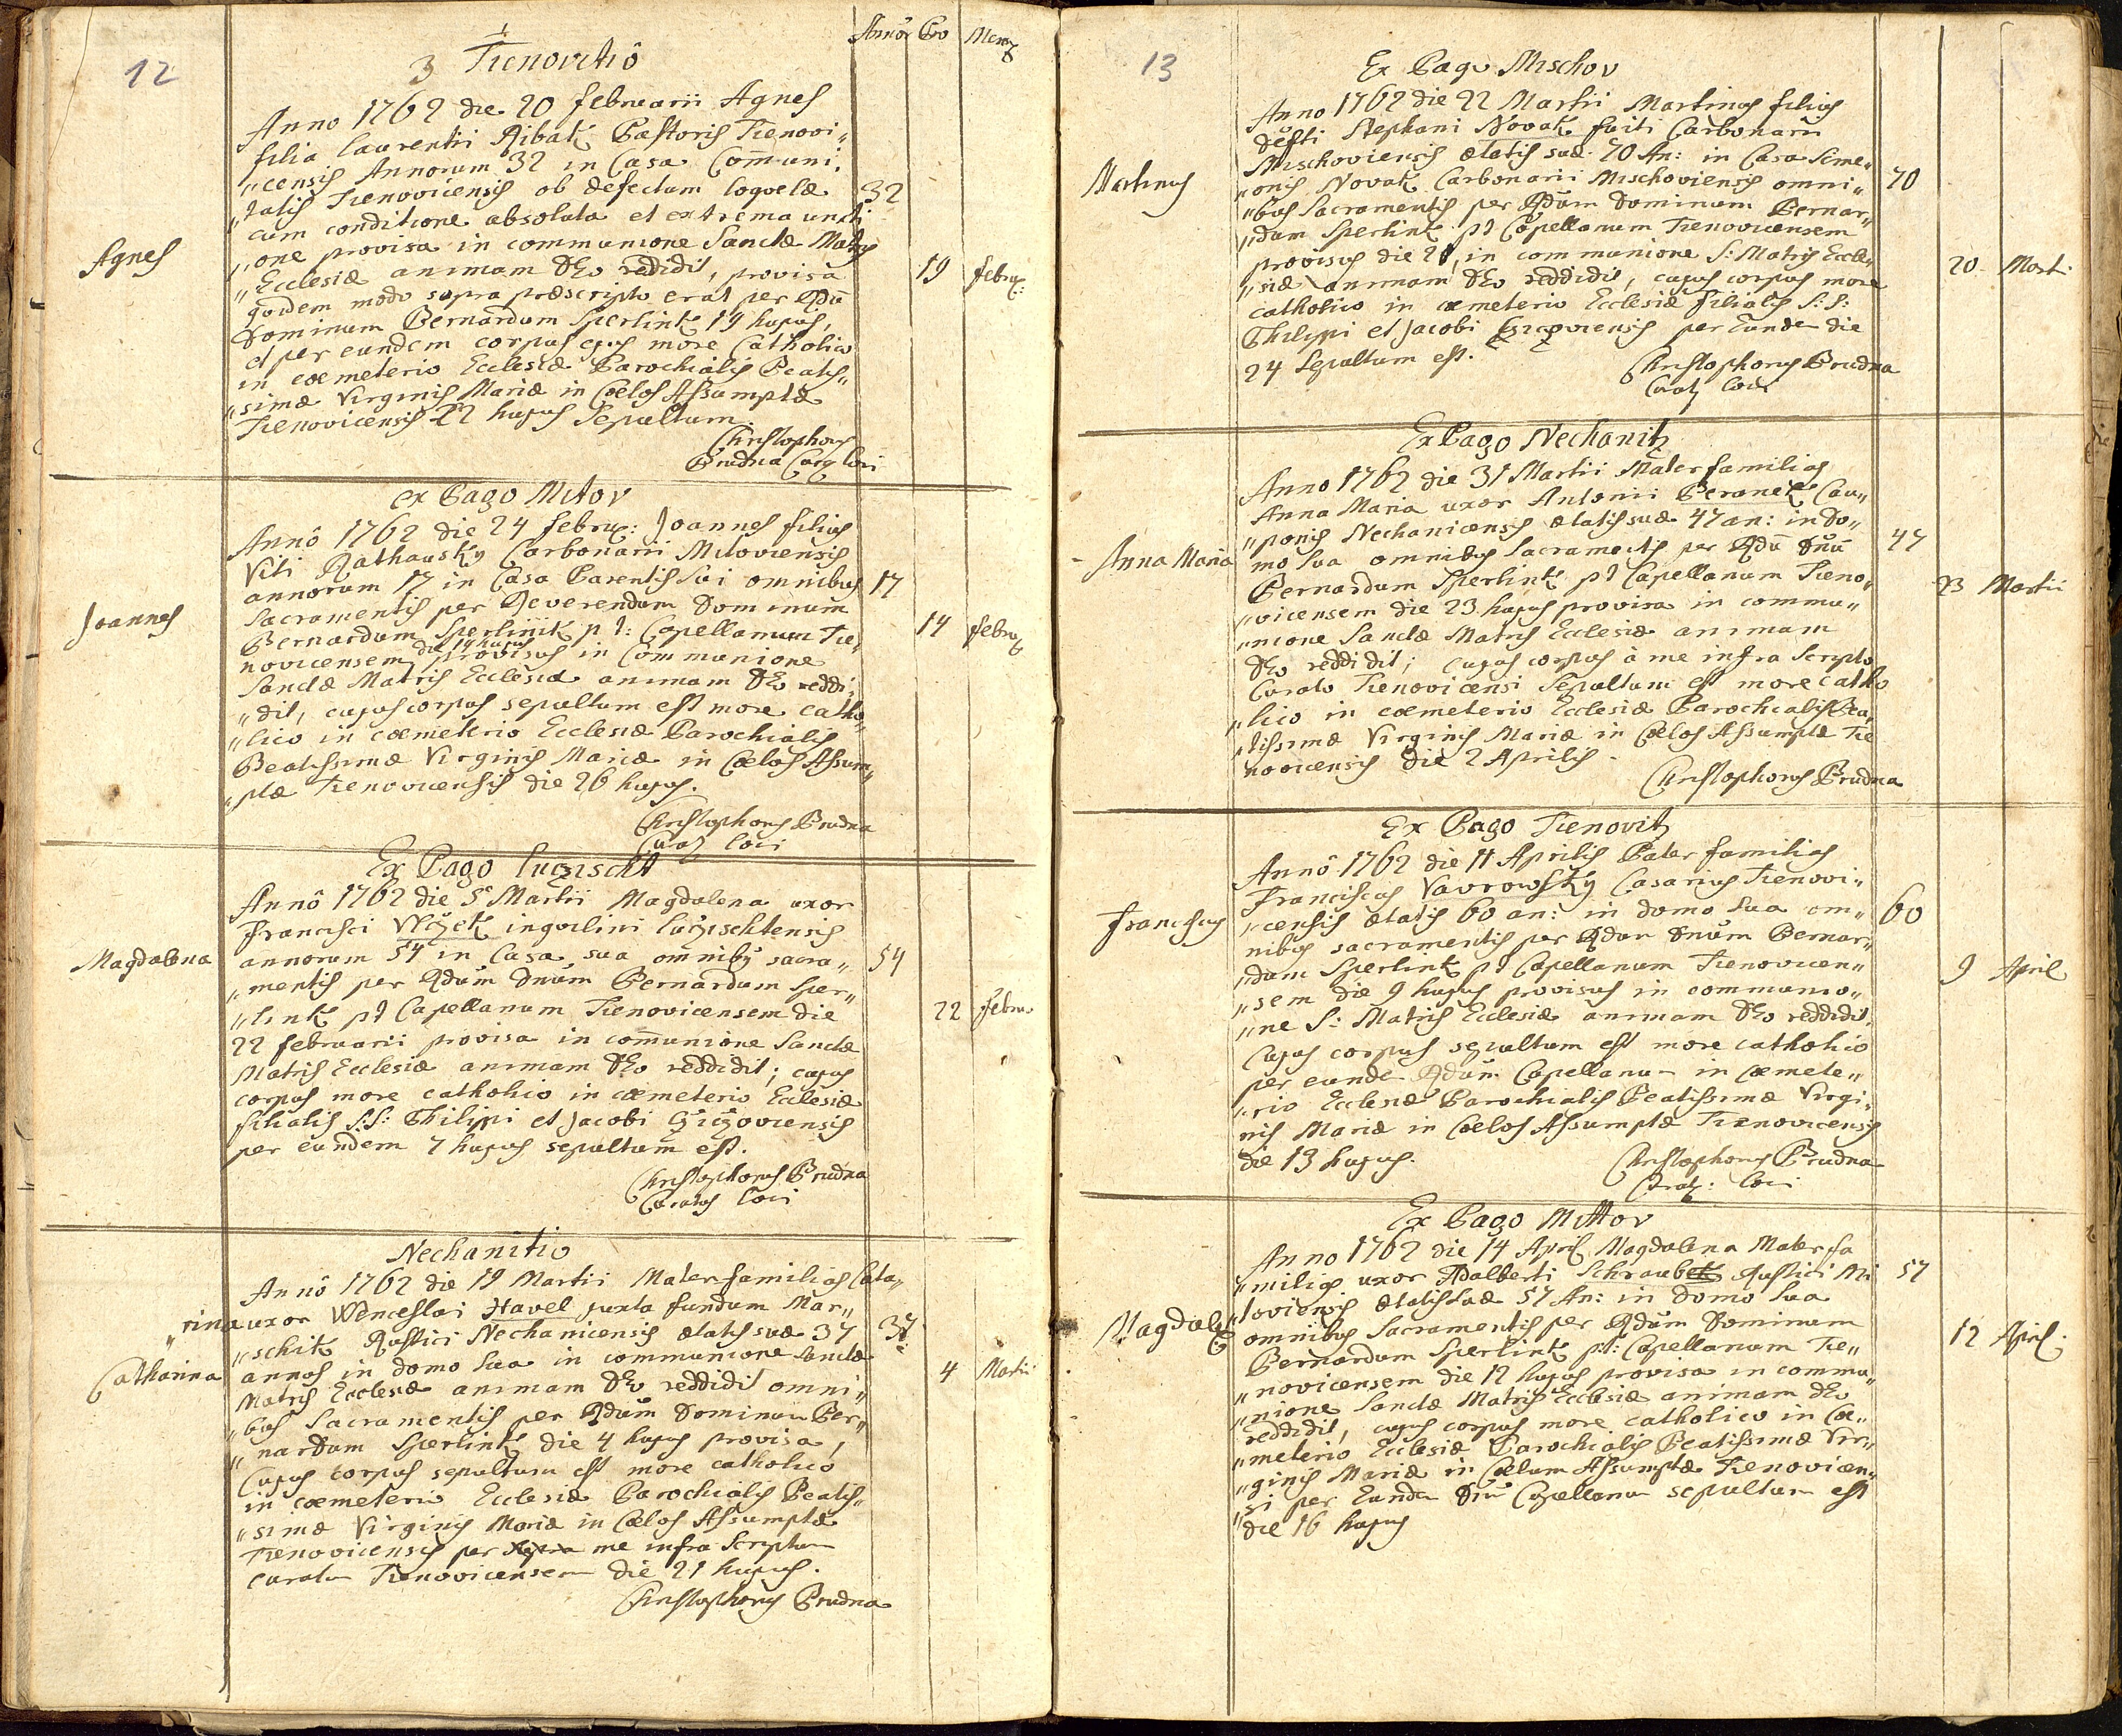 12
Annor Pro Mens
3 Tienovitio
Anno 1762 die 20 februarii Agnes
filia Laurentii Ribak Pastoris Tienovi„
„censis Annorum 32 in Casa Communi„
„tatis Tienovicensis ob defectum loquelæ 32
cum conditione absoluta et extrema uncti
„one provisa in communione Sanctæ Matris
Agnes
„Ecclesiæ animam Deo reddidit, provisa 19 febru:
quidem modo supra præscripto erat per Rdū
Dominum Bernardum Sperlink 19 hujus,
et per eundem corpus ejus more Catholico
in cœmeterio Ecclesiæ Parochialis Beatis„
„simæ Virginis Mariæ in Cœlos Assumptæ
Tienovicensis 22 hujus Sepultum.
Christophorus
Prudna Cur loci
ex Pago Mitov
Annô 1762 die 24 febru: Joannes filius
Viti Rathausky Carbonarii Mitoviensis
annorum 17 in Casa Parentis sui omnibus 17
Joannes
Sacramentis per Reverendum Dominum
Bernardum Sperlink p t: Capellanum Tie„ 14 febru
novicensem die 14 hujus provisus in Communione
Sanctæ Matris Ecclesiæ animam Deo reddi„
„dit, cujus corpus sepultum est more catho„
„lico in cœmeterio Ecclesiæ Parochialis
Beatissimæ Virginis Mariæ in Cœlos Assum„
„ptæ Tienovicensis die 26 hujus.
Christophorus Prudna
Curatus loci
Ex Pago Luczischt
Annô 1762 die 5 Martii Magdalena uxor
Francisci Wlczek inquilini Luczischtensis
Magdalena annorum 54 in Casa sua omnibus sacra„ 54
„mentis per Rdum Dnum Bernardum Sper„
„link pt Capellanum Tienovicensem die 22 febru
22 februarii provisa in communione Sanctæ
Matris Ecclesiæ animam Deo reddidit; cujus
corpus more catholico in cœmeterio Ecclesiæ
filialis S:S: Philippi et Jacobi Giczoviensis
per eundem 7 hujus sepultum est.
Christophorus Prudna
Curatus loci
Nechanitio
Annô 1762 die 19 Martii Materfamilias Cata„
„rina uxor Wenceslai Havel juxta fundum Mar„
„schik Rustici Nechanicensis ætatis suæ 37 37
Catharina annos in domo sua in communione Sanctæ 4 Martii
Matris Ecclesiæ animam Deo reddidit omni„
„bus Sacramentis per Rdum Dominum Ber„
„nardum Sperlink die 4 hujus provisa,
Cujus corpus sepultum est more catholico
in cœmeterio Ecclesiæ Parochialis Beatis„
„simæ Virginis Mariæ in Cœlos Assumptæ
Tienovicensis per me infra Scriptum
curatum Tienovicensem die 21 hujus.
Christophorus Prudna
13
Ex Pago Mischov
Anno 1762 die 22 Martii Martinus filius
defti Stephani Novak fuiti Carbonarii
Mischoviensis ætatis suæ 70 An: in Casa Sime„
Martinus „onis Novak Carbonarii Mischoviensis omni„ 70
„bus Sacramentis per Rdum Dominum Bernar„
„dum Sperlink pt Capellanum Tienovicensem
provisus die 20, in communione S: Matris Eccle„ 20 Marti:
„siæ animam Deo reddidit, cujus corpus more
catholico in cœmeterio Ecclesiæ filialis S:S:
Philippi et Jacobi Giczoviensis per Eunde die
24 Sepultum est.
Christophorus Prudna
Curatus loci
Ex Pago Nechanitz
Anno 1762 die 31 Martii Materfamilias
Anna Maria uxor Antonii Beranek Cau„
„ponis Nechanicensis ætatis suæ 47 an: in do„ 47
Anna Maria mo sua omnibus Sacramentis per Rdū Dnū
Bernardum Sperlink pt Capellanum Tieno„ 23 Martii
„vicensem die 23 hujus provisa in commu„
„nione Sanctæ Matris Ecclesiæ animam
Deo reddidit; cujus corpus à me infra Scripto
Curato Tienovicensi Sepultum est more catho
„lico in cœmeterio Ecclesiæ Parochialis Bea„
„tissimæ Virginis Mariæ in Cœlos Assumptæ Tie
novicensis die 2 Aprilis.
Christophorus Prudna
Ex Pago Tienovitz
Annô 1762 die 11 Aprilis Pater familias
Franciscus Vavrowsky Casarius Tienovi„
Franciscus „censis ætatis 60 an: in domo sua om„ 60
nibus sacramentis per Rdum Dnum Bernar„
„dum Sperlink pt Capellanum Tienovicen„
„sem die 9 hujus provisus in communio„ 9 April
„ne S: Matris Ecclesiæ animam Deo reddidit.
Cujus corpus sepultum est more catholico
per eunde Rdum Capellanum in Cœmete„
„rio Ecclesiæ Parochialis Beatissimæ Virgi„
nis Mariæ in Cœlos Assumptæ Tienovicensis
die 13 hujus.
Christophorus Prudna
Curat: loci
Ex Pago Mittov
Anno 1762 die 14 April Magdalena Materfa
„milias uxor Adalberti Schraubek Rustici Mi 57
Magdalena „toviensis ætatis suæ 57 An: in domo sua
omnibus Sacramentis per Rdum Dominum 12 April.
Bernardum Sperlink pt: Capellanum Tie„
„novicensem die 12 hujus provisa in commu„
„nione Sanctæ Matris Ecclesiæ animam Deo
reddidit, cujus corpus more catholico in Cœ„
„meterio Ecclesiæ Parochialis Beatissimæ Vir„
„ginis Mariæ in Cœlum Assumptæ Tienovicen„
„si per Eunde Dnū Capellanum sepultum est
die 16 hujus